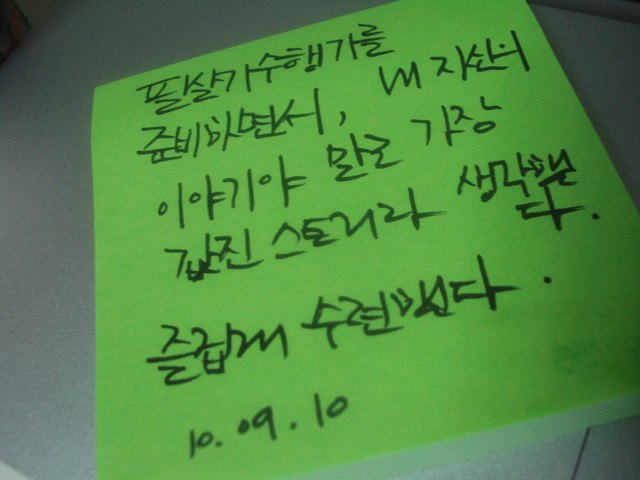 필살기수행기를
준비하면서, 내 자신의
이야기야 말로 가장
값진 스토리라 생각했
다.
즐겁게 수련했다.
10.09.10